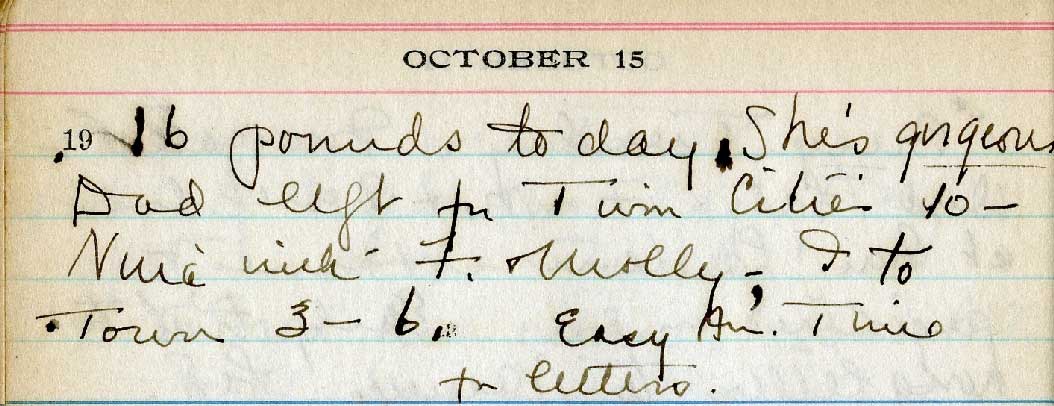 OCTOBER 15
19 16 pounds today. She's gorgeous
Dad left for Twin Cities 10 -
F. & Molly - I to
Town 3 - 6. Easy Time
for letters.